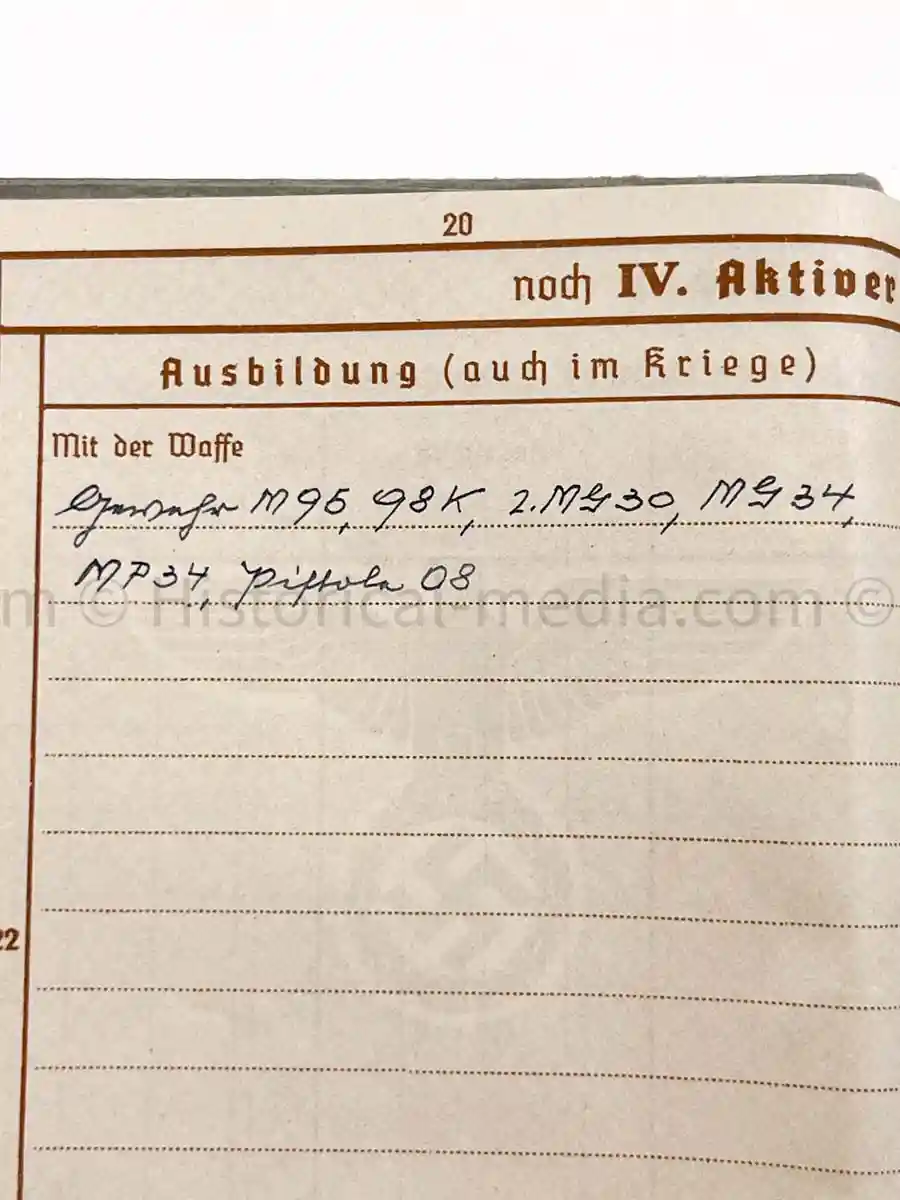 20
noch IV. Aktiver
Ausbildung (auch im Kriege)
Mit der Waffe
Gewehr M95, 98K, 2.MG30, MG34,
MP34, Pistole 08
m © Historical-media.com ©
22